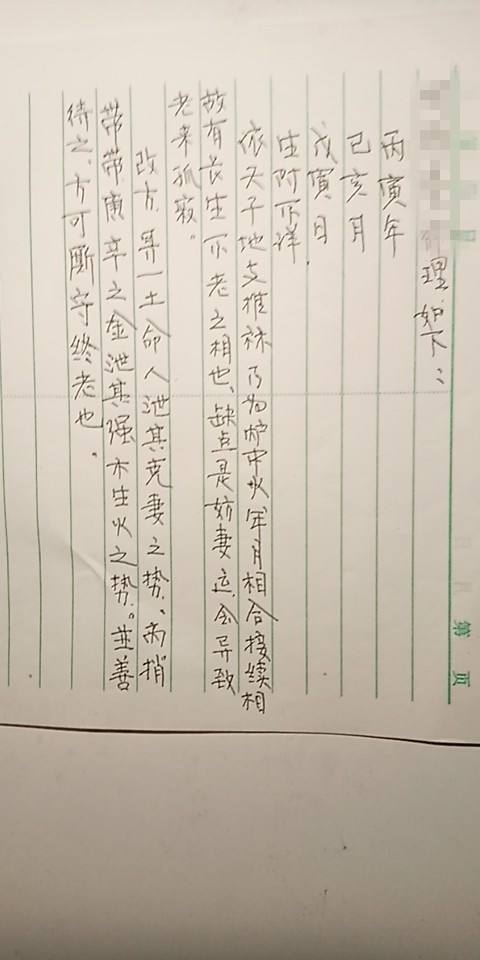 第 页
理如下：
丙寅年
己亥月
戊寅日
生时不详.
依天干地支推祘乃为炉中火年月相合接续相
故有长生不老之相也、缺点是妨妻运.会导致
老来孤寂。
改方.寻一土命人泄其克妻之势、而捎
带带庚辛之金泄其强木生火之势。並善
待之、方可断守终老也.